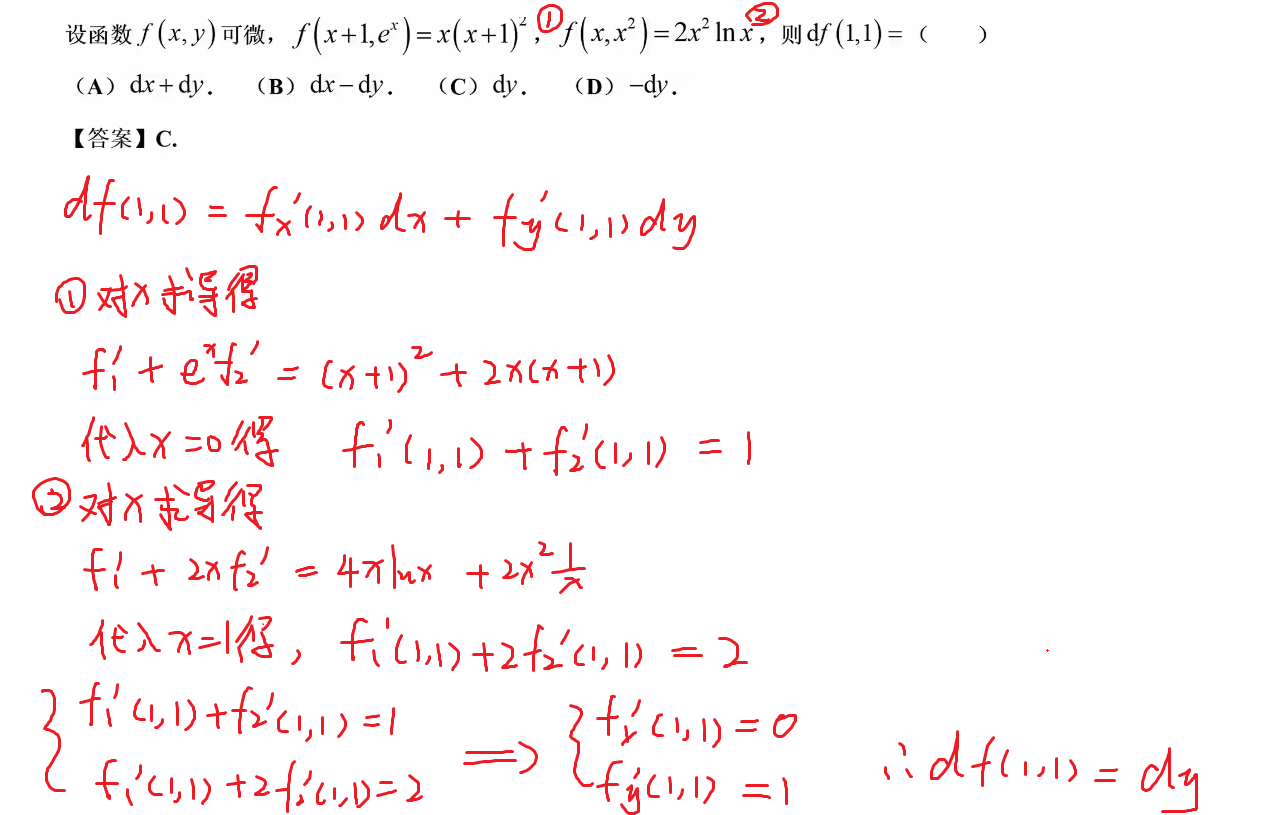 设函数 f(x,y) 可微，f(x+1,eˣ)=x(x+1)²，① f(x,x²)=2x² ln x，② 则 df(1,1)=（　　）
（A）dx+dy．（B）dx−dy．（C）dy．（D）−dy．
【答案】C.
df(1,1) = fₓ'(1,1)dx + f_y'(1,1)dy
①对x求导得
f₁' + eˣf₂' = (x+1)² + 2x(x+1)
代入x=0得 f₁'(1,1) + f₂'(1,1) = 1
②对x求导得
f₁' + 2xf₂' = 4xlnx + 2x² 1/x
代入x=1得, f₁'(1,1)+2f₂'(1,1) = 2
{ f₁'(1,1)+f₂'(1,1)=1 ⟹ { fₓ'(1,1)=0 ∴df(1,1)=dy
f₁'(1,1)+2f₂'(1,1)=2 f_y'(1,1)=1